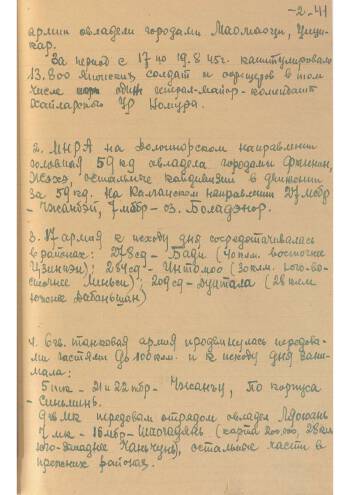 -2- 41
армии овладели городами Маомаогун, Цици-
кар.
За период с 17 по 19.8.45г. капитулировало
13.800 японских солдат и офицеров в том
числе один генерал-майор - комендант
Хайларского УР Номура.
2. МНРА на Долонорском направлении
головная 59 кд овладела городами Фынин,
Жэхэ, остальные кавдивизии в движении
за 59 кд. На Калганском направлении 27 мсбр
- Чжанбэй, 7 мбр - оз.
3. 17 армия к исходу дня сосредотачивалась
в районах: 278сд - (40 клм. восточнее
); 284сд - (30 клм. юго-во-
сточнее ); 209сд - (28 клм
южнее ).
4. 6 гв. танковая армия продвинулась передовы-
ми частями до 100 клм. и к исходу дня зани-
мала:
5 гтк - 21 и 22 тбр - Чжанъу, по корпуса
- Синьминь.
9 мк передовым отрядом овладел Ляоюань
7 мк - 16 мбр - (карта 200.000, 28 клм
юго-западнее Чанчунь), остальные части в
прежних районах.